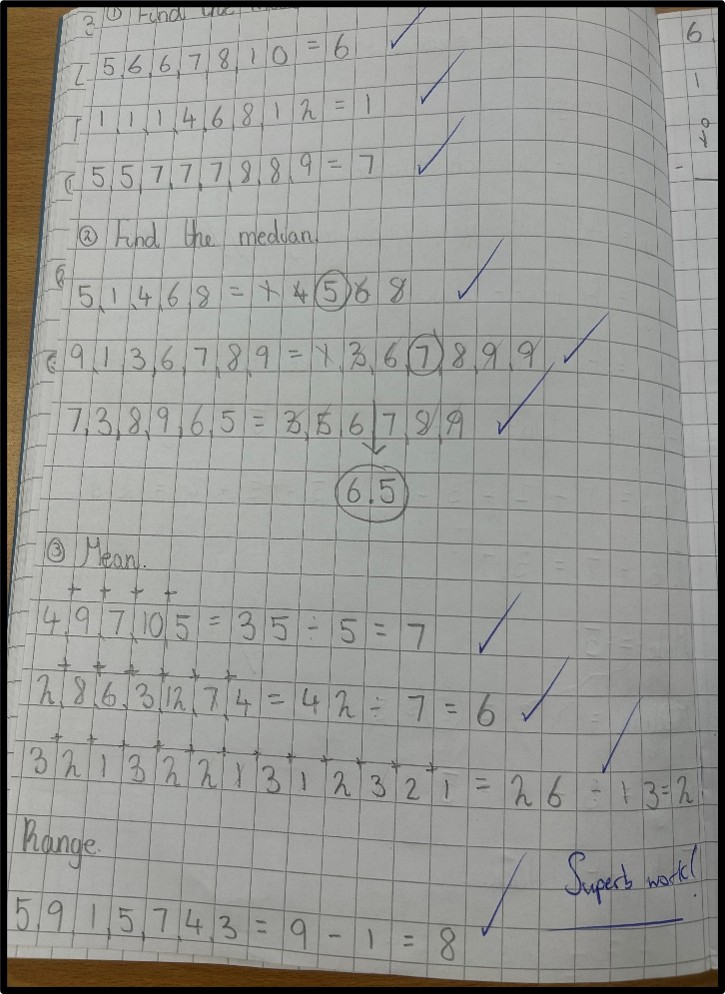 ① Find the
5, 6, 6, 7, 8, 1 0 = 6
1, 1, 1, 4, 6, 8, 1 2 = 1
5, 5, 7, 7, 7, 8, 8, 9 = 7
② Find the median.
5, 1, 4, 6, 8 = 1 4 5 6 8
9, 1, 3, 6, 7, 8, 9 = 1, 3, 6, 7, 8, 9, 9
7, 3, 8, 9, 6, 5 = 3, 5, 6 7, 8, 9
6.5
③ Mean.
+ + + +
4, 9, 7, 10, 5 = 35 ÷ 5 = 7
+ + + + + +
2, 8, 6, 3, 12, 7, 4 = 42 ÷ 7 = 6
+ + + + + + + + + + + +
3 2 1 3 2 2 1 3 1 2 3 2 1 = 26 ÷ 13 = 2
Range.
Superb work!
5, 9, 1, 5, 7, 4, 3 = 9 - 1 = 8
6
1